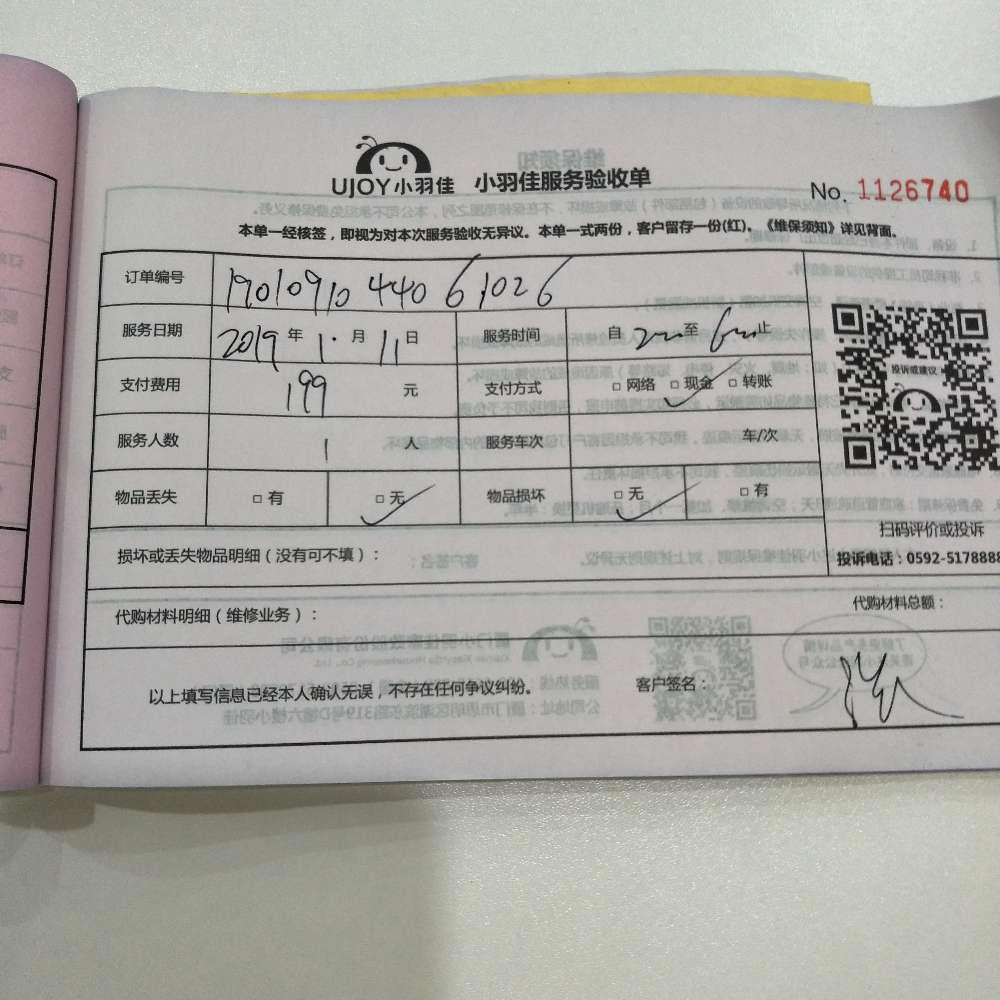 UJOY小羽佳 小羽佳服务验收单
No. 1126740
本单一经核签，即视为对本次服务验收无异议。本单一式两份，客户留存一份(红)。《维保须知》详见背面。
订单编号 1901091044061026
服务日期 2019年1月11日 服务时间 自 至 止
支付费用 199 元 支付方式 □网络 □现金 □转账
服务人数 1 人 服务车次 车/次
物品丢失 □有 □无 物品损坏 □无 □有
投诉或建议
扫码评价或投诉
损坏或丢失物品明细（没有可不填）：
投诉电话：0592-5178888
代购材料明细（维修业务）： 代购材料总额：
以上填写信息已经本人确认无误，不存在任何争议纠纷。 客户签名：